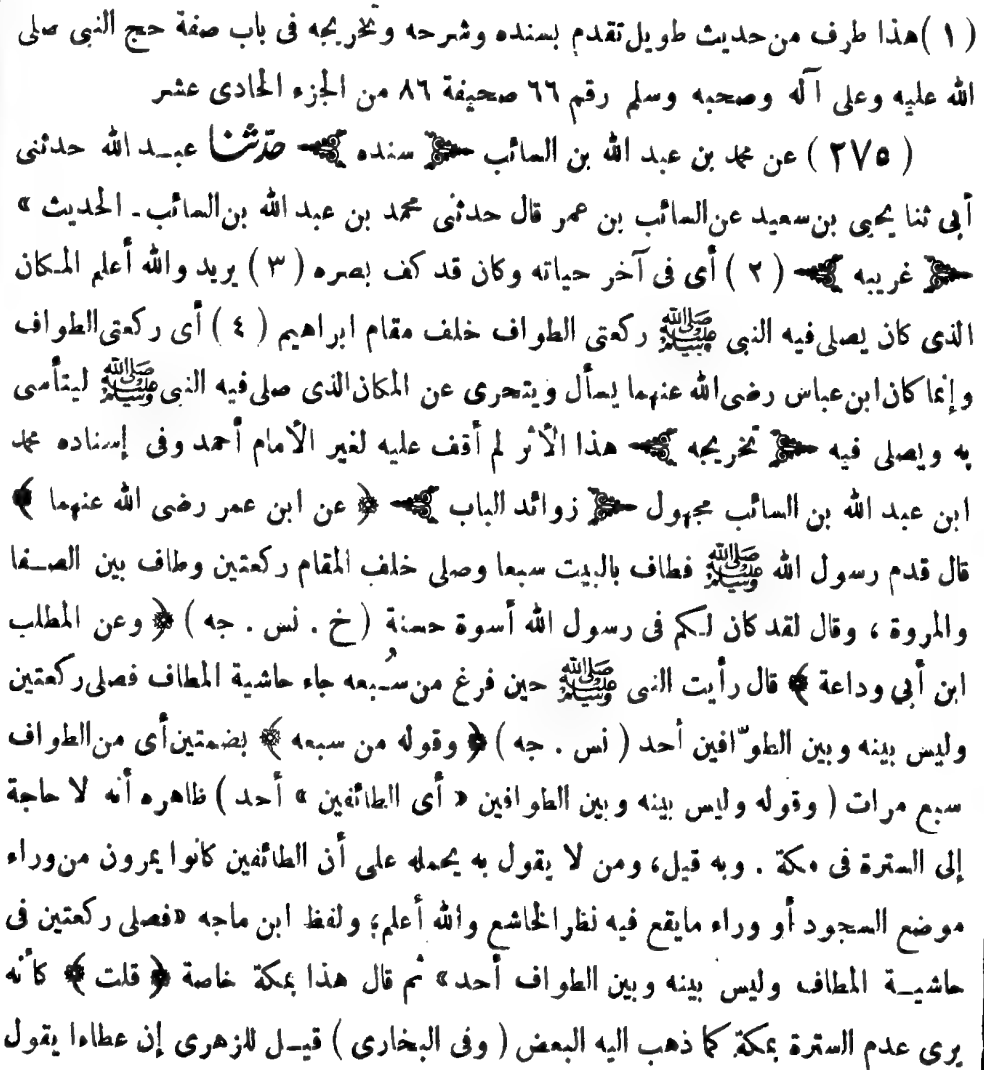 (١) هذا طرف من حديث طويل تقدم بسنده وشرحه وتخريجه فى باب صفة حج النبى صلى
الله عليه وعلى آله وصحبه وسلم رقم ٦٦ صحيفة ٨٦ من الجزء الحادى عشر
(٢٧٥) عن محمد بن عبد الله بن السائب ﴿ سنده ﴾ حدّثنا عبـد الله حدثنى
أبى ثنا يحيى بن سعيد عن السائب بن عمر قال حدثنى محمد بن عبد الله بن السائب ـ الحديث »
﴿ غريبه ﴾ (٢) أى فى آخر حياته وكان قد كف بصره (٣) يريد والله أعلم المـكان
الذى كان يصلى فيه النبى ﷺ ركعتى الطواف خلف مقام ابراهيم (٤) أى ركعتى الطواف
وإنما كان ابن عباس رضى الله عنهما يسأل ويتحرى عن المكان الذى صلى فيه النبى ﷺ ليتأسى
به ويصلى فيه ﴿ تخريجه ﴾ هذا الأثر لم أقف عليه لغير الأمام أحمد وفى إسناده محمد
ابن عبد الله بن السائب مجهول ﴿ زوائد الباب ﴾ ﴿ عن ابن عمر رضى الله عنهما ﴾
قال قدم رسول الله ﷺ فطاف بالبيت سبعا وصلى خلف المقام ركعتين وطاف بين الصـفا
والمروة ، وقال لقد كان لـكم فى رسول الله أسوة حسنة (خ . نس . جه) ﴿ وعن المطلب
ابن أبي وداعة ﴾ قال رأيت النبى ﷺ حين فرغ من سُـبعه جاء حاشية المطاف فصلى ركعتين
وليس بينه وبين الطوّافين أحد (نس . جه) ﴿ وقوله من سبعه ﴾ بضمتين أى من الطواف
سبع مرات (وقوله وليس بينه وبين الطوافين « أى الطائفين » أحد) ظاهره أنه لا حاجة
إلى السترة فى مكة . وبه قيل، ومن لا يقول به يحمله على أن الطائفين كانوا يمرون من وراء
موضع السجود أو وراء مايقع فيه نظر الخاشع والله أعلم؛ ولفظ ابن ماجه «فصلى ركعتين فى
حاشيـة المطاف وليس بينه وبين الطواف أحد» ثم قال هذا بمكة خاصة ﴿ قلت ﴾ كأنه
يرى عدم السترة بمكة كما ذهب اليه البعض (وفى البخارى) قيـل للزهرى إن عطاءا يقول